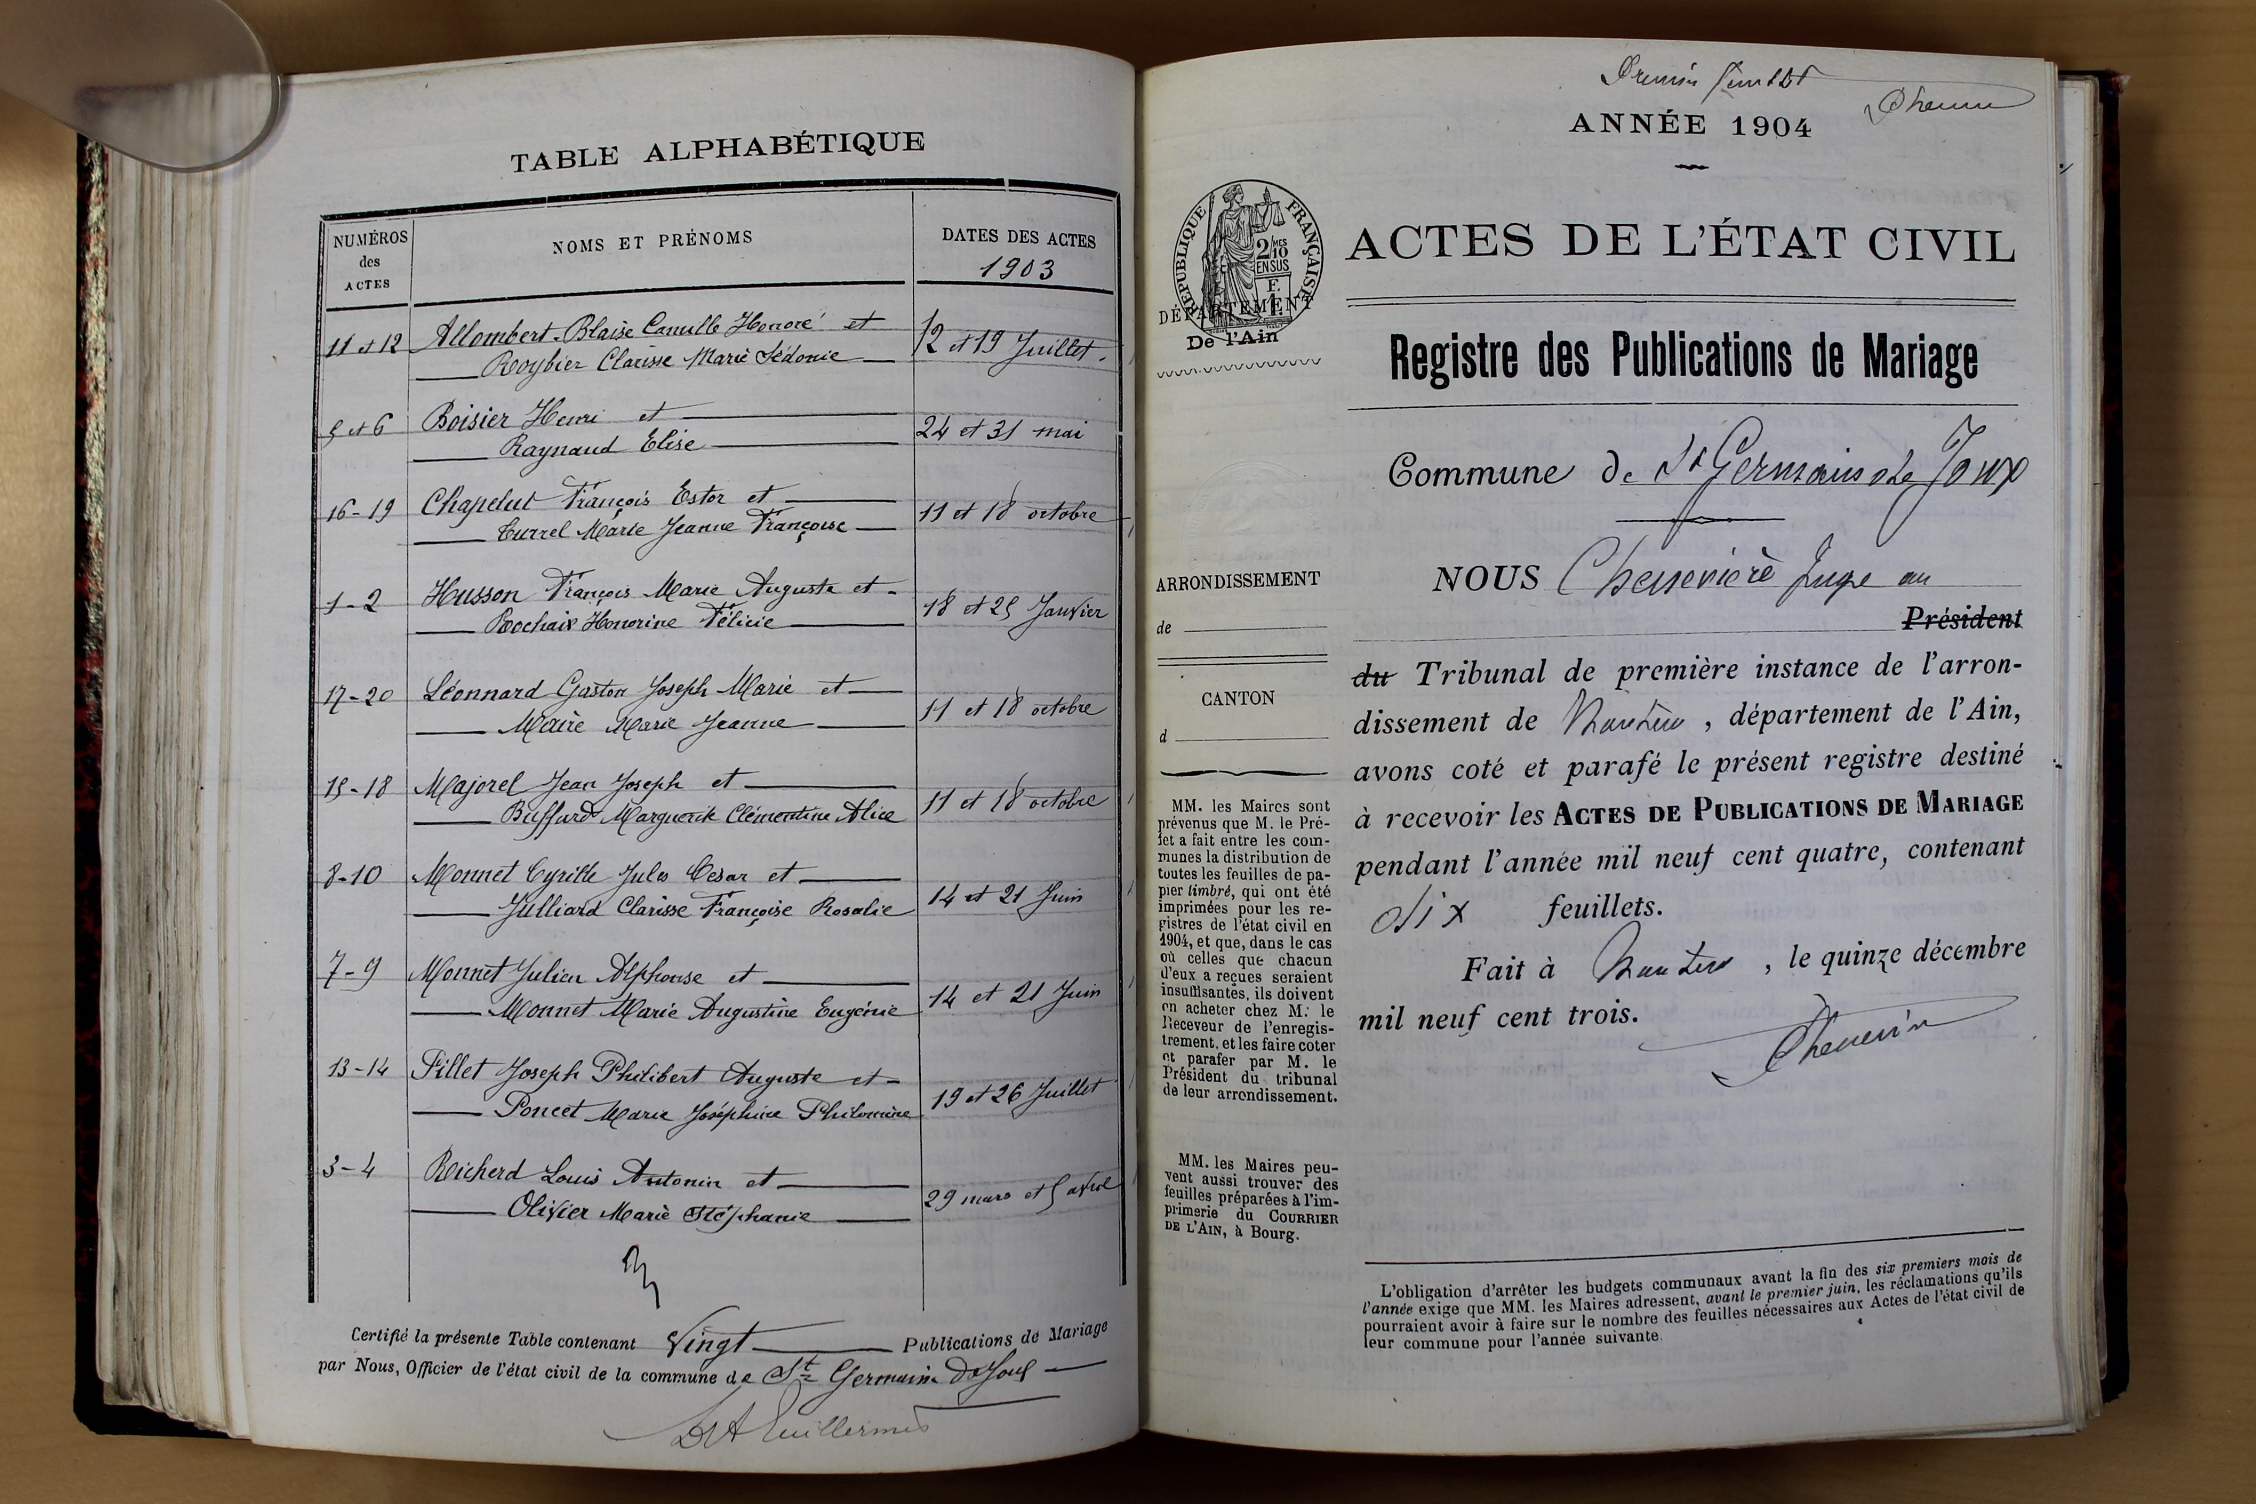 TABLE ALPHABÉTIQUE
NUMÉROS
des
ACTES
NOMS ET PRÉNOMS
DATES DES ACTES
1903
11 et 12 Allombert-Blaise Camille Honoré et 12 et 19 Juillet.
Roybier Clarisse Marie Sédonie
5 et 6 Boisier Henri et 24 et 31 mai
Raynaud Elise
16-19 Chapelut François Ester et 11 et 18 octobre
Currel Marie Jeanne Françoise
1-2 Husson François Marie Auguste et 18 et 25 Janvier
Rochaix Honorine Félicie
17-20 Léonnard Gaston Joseph Marie et 11 et 18 octobre
Maire Marie Jeanne
15-18 Majorel Jean Joseph et 11 et 18 octobre
Buffard Marguerite Clémentine Alice
8-10 Monnet Cyrille Jules Cesar et 14 et 21 Juin
Julliard Clarisse Françoise Rosalie
7-9 Monnet Julien Alphonse et 14 et 21 Juin
Monnet Marie Augustine Eugénie
13-14 Pillet Joseph Philibert Auguste et 19 et 26 Juillet
Poncet Marie Joséphine Philomène
3-4 Richerd Louis Antonin et 29 mars et 5 avril
Olivier Marie Stéphanie
Certifié la présente Table contenant Vingt Publications de Mariage
par Nous, Officier de l'état civil de la commune de St Germain de Joux
Guillermet
Premier feuillet
ANNÉE 1904
RÉPUBLIQUE FRANÇAISE
2/10 MES
EN SUS
F.
1.
DÉPARTEMENT
De l'Ain
ACTES DE L'ÉTAT CIVIL
Registre des Publications de Mariage
Commune de St Germain de Joux
ARRONDISSEMENT
de
CANTON
d
NOUS Chenevière Juge au
Président
du Tribunal de première instance de l'arron-
dissement de Nantua, département de l'Ain,
avons coté et parafé le présent registre destiné
à recevoir les ACTES DE PUBLICATIONS DE MARIAGE
pendant l'année mil neuf cent quatre, contenant
dix feuillets.
Fait à Nantua, le quinze décembre
mil neuf cent trois.
MM. les Maires sont
prévenus que M. le Pré-
fet a fait entre les com-
munes la distribution de
toutes les feuilles de pa-
pier timbré, qui ont été
imprimées pour les re-
gistres de l'état civil en
1904, et que, dans le cas
où celles que chacun
d'eux a reçues seraient
insuffisantes, ils doivent
en acheter chez M. le
Receveur de l'enregis-
trement, et les faire coter
et parafer par M. le
Président du tribunal
de leur arrondissement.
MM. les Maires peu-
vent aussi trouver des
feuilles préparées à l'im-
primerie du COURRIER
DE L'AIN, à Bourg.
L'obligation d'arrêter les budgets communaux avant la fin des six premiers mois de
l'année exige que MM. les Maires adressent, avant le premier juin, les réclamations qu'ils
pourraient avoir à faire sur le nombre des feuilles nécessaires aux Actes de l'état civil de
leur commune pour l'année suivante.